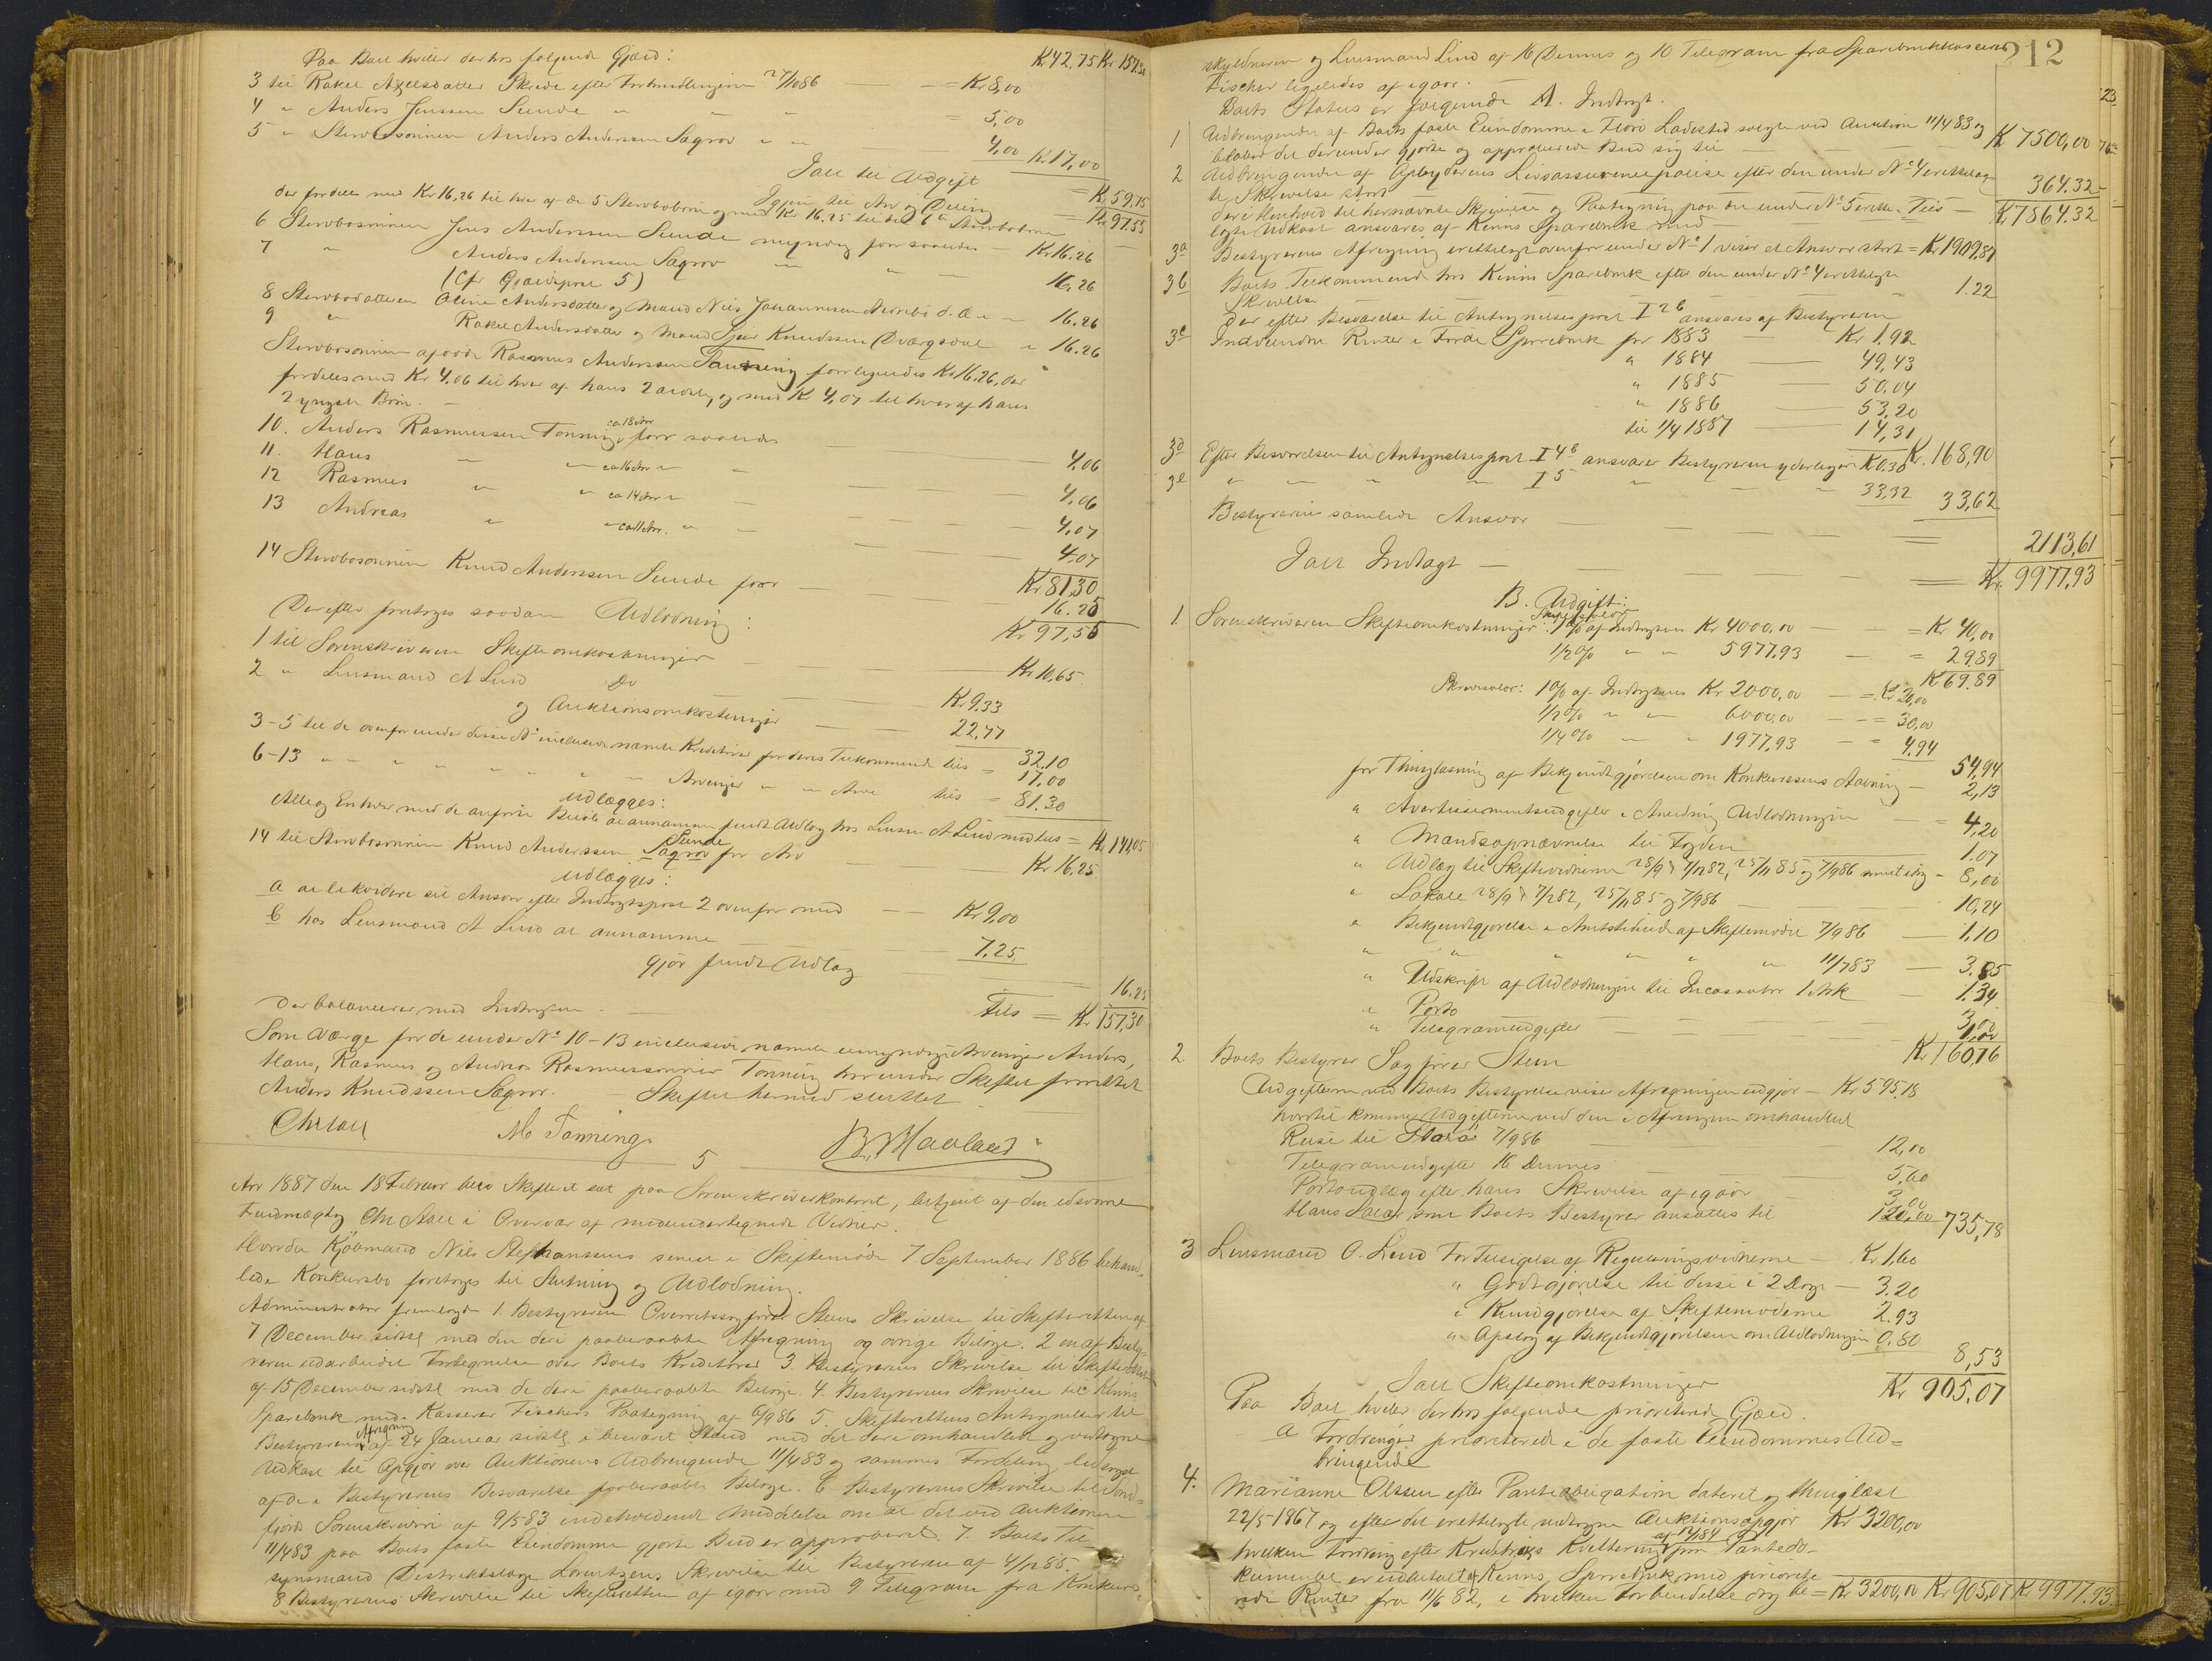 Paa Boet hviler der hos følgende Gjæld: Kr 42.75 Kr 157.30
3 til Rakel Axelsdatter Skrede efter Forhandlingerne 27/10 86 — = Kr 8,00
4 " Anders Jenssen Sunde " " = 5,00
5 " Stervbosønnen Anders Anderssen Sagrov " " — 4,00 Kr. 17,00
Ialt til Udgift = Kr 59,75
Igjen til Arv og Deling = Kr. 97.55
der fordeles med Kr 16,26 til hver af de 5 Stervbobørn og med Kr 16.25 til det 6te Stervbobarn
6 Stervbosønnen Jens Anderssen Sunde myndig faar saaledes — Kr 16.26
7 " Anders Anderssen Sagrov " " — 16,26
(Cfr Gjældspost 5)
8 Stervbodatteren Oline Andersdatter og Mand Nils Johannesen d. Æ " — 16.26
9 " Rakel Andersdatter og Mand Knudssen Dvergsdal " 16.26
Stervbosønnen afdøde Rasmus Anderssen Tonning faar ligeledes Kr 16.26, der
fordeles med Kr 4,06 til hver af hans 2 ældste, og med Kr 4,07 til hver af hans
2 yngste Børn. —
10. Anders Rasmussen Tonning, ca 18 Aar faar saaledes — 4,06
11. Hans " " ca 16 Aar " " — 4,06
12 Rasmus " " ca 14 Aar " — 4,07
13 Andreas " " ca 11 Aar. " — 4,07
Kr 81,30
14 Stervbosønnen Knud Anderssen Sunde faar — 16.25
Kr 97,55
Derefter foretoges saadan Udlodning:
1 til Sorenskriveren Skifteomkostninger — Kr 10,65
2 " Lensmand A Lind Do — Kr 9.33
og Auktionsomkostninger — 22,77
32.10
3-5 til de ovenfor under disse No inclusive nævnte Kreditorer for deres Tilkommende tils = 17.00
6-13 " " " " " " " Arvinger " " Arv tils = 81.30
Udlægges:
Alle og Enhver med de anførte Beløb at annamme fuldt Udlæg hos Lensm A Lind med tils = Kr 141,05
14 til Stervbosønnen Knud Anderssen Sagrov Sunde for Arv — Kr 16,25
Udlægges:
a at likvidere sit Ansvar efter Indtægtspost 2 ovenfor med — Kr 9,00
b hos Lensmand A Lind at annamme — 7.25
gjør fuldt Udlæg — 16.25
der balancerer med Indtægten. — tils = Kr 157,30
Som Værge for de under No 10-13 inclusive nævnte umyndige Arvinger Anders,
Hans, Rasmus og Andreas Rasmussønner Tonning har under Skiftet fremstillet
Anders Knudssen Sagrov. — Skiftet hermed sluttet
Chr Stall M Tonning B. Haaland
5
Aar 1887 den 18 Februar blev Skifteret sat paa Sorenskriverkontoret, betjent af den edsvorne
Fuldmægtig Chr Stall i Overvær af medundertegnede Vidner.
Hvorda Kjøbmand Nils Stephanssens senest i Skiftemøde 7 September 1886 behand-
lede Konkursbo foretoges til Slutning og Udlodning.
Administrator fremlagde 1. Bestyreren Overretssagfører Steens Skrivelse til Skifteretten af
7 December sidstl med den deri paaberaabte Afregning og øvrige Bilage. 2 en af Besty-
reren udarbeidet Fortegnelse over Boets Kreditorer 3. Bestyrerens Skrivelse til Skifteretten
af 15 December sidstl med de deri paaberaabte Bilage. 4. Bestyrerens Skrivelse til Kinns
Sparebank med Kasserer Fischers Paategning af 6/9 86 5. Skifterettens Antegnelser til
Bestyrerens Afregning af 24 Januar sidstl i besvaret Stand med det deri omhandlede og vedtagne
Udkast til Opgjør over Auktionens Udbringende 11/4 83 og sammes Fordeling ledsaget
af de i Bestyrerens Besvarelse paaberaabte Bilage. 6 Bestyrerens Skrivelse til Sønd-
fjords Sorenskriveri af 9/5 83 indeholdende Meddelelse om at det ved Auktionen
11/4 83 paa Boets faste Eiendomme gjorte Bud er approberet. 7. Boets Til-
synsmand Distriktslæge Lorentzens Skrivelse til Bestyreren af 4/12 85.
8 Bestyrerens Skrivelse til Skifteretten af igaar med 9 Telegram fra Konkurs-
212
skyldneren og Lensmand Lind af 16 Dennes og 10 Telegram fra Sparebankkasserer
Fischer ligeledes af igaar.
Boets Status er følgende A. Indtægt.
1 Udbringendet af Boets faste Eiendomme i Florø Ladested solgte ved Auktion 11/4 83 og
beløber det derunder gjorte og approberede Bud sig til — Kr 7500,00
2 Udbringendet af Livsassurancepolise efter den under No 4 fremlag-
te Skrivelse stort — 364.32
der i Henhold til hernævnte Skrivelse og Paategning paa det under No 5 frem- Tils — Kr 7864.32
lagte Udkast ansvares af Kinns Sparebank med —
3a Bestyrerens Afregning fremlagt ovenfor under No 1 viser et Ansvar stort = Kr 1909,87
3b Boets Tilkommende hos Kinns Sparebank efter den under No 4 fremlagte
Skrivelse — 1.22
der efter Besvarelse til Antegnelsespost I 2b ansvares af Bestyreren
3c Indvundne Renter i Førde Sparebank for 1883 — Kr 1,92
" 1884 — 49,43
" 1885 — 50,04
" 1886 — 53,20
til 1/4 1887 — 14,31
Kr. 168,90
3d Efter Besvarelsen til Antegnelsespost I 4b ansvarer Bestyreren yderligere Kr 0.30
3e " " " " I 5 " " " 33,32 33,62
Bestyrerens samlede Ansvar — 2113,61
Ialt Indtægt — Kr. 9977,93
B. Udgift:
1. Sorenskriveren Skifteomkostninger: Skiftesalær 1% af Indtægtens Kr 4000,00 — = Kr 40,00
1/2% " " 5977,93 — = 29,89
Kr 69.89
Skriversalær: 1% af Indtægtens Kr 2000,00 — = Kr 20,00
1/2% " " 6000,00 — = 30,00
1/4% " " 1977,93 — = 4.94
54,94
for Thinglæsning af Bekjendtgjørelsen om Konkursens Aabning — 2,13
" Avertissementsudgifter i Anledning Udlodningen — = 4,20
" Mandsopnævnelse til Fogden — 1.07
" Udlæg til Skiftevidnerne 28/9 & 7/12 82, 25/11 85 og 7/9 86 — 8,00
" Lokale 28/9 & 7/12 82, 25/11 85 og 7/9 86 — 10,24
" Bekjendtgjørelse i Amtstidende af Skiftemøde 7/9 86 — 1,10
" " " " " " 11/7 83 — 3.85
" Udskrift af Udlodningen til Incassator 1 Ark — 1.34
" Porto — 3,00
" Telegramudgifter — 1,00
Kr 160,76
2. Boets Bestyrer Sagfører Steen
Udgifterne ved Boets Bestyrelse vise Afregningen udgjør — Kr 595,18
hvortil kommer Udgifterne ved den i Afregningen omhandlede
Reise til Florø 7/9 86 — 12,00
Telegramudgifter 16 Dennes — 5,60
Portoudlæg efter hans Skrivelse af igaar — 3,00
Hans Salær som Boets Bestyrer ansattes til — 120,00 735,78
3 Lensmand O. Lind For Tilsigelse af Registreringsvidnerne — Kr 1,60
" Godtgjørelse til disse i 2 Dage — 3.20
" Kundgjørelse af Skiftemøderne 2.93
" Opslag af Bekjendtgjørelsen om Udlodningen 0.80
8,53
Ialt Skifteomkostninger Kr 905,07
Paa Boet hviler derhos følgende prioriterede Gjæld.
a Fordringer prioriterede i de faste Eiendommes Ud-
bringende
4. Marianne Olssen efter Panteobligation dateret og thinglæst
22/5 1867 og efter det fremlagte vedtagne Auktionsopgjør Kr 3200,00
hvilken Fordring efter Kreditors Kvittering af 12/1 84 paa Pantedo-
kumentet er indbetalt af Kinns Sparebank med prioritere-
rede Renter fra 11/6 82, i hvilken Forbindelse og be- = Kr 3200,00 Kr. 905,07 Kr 9977.93